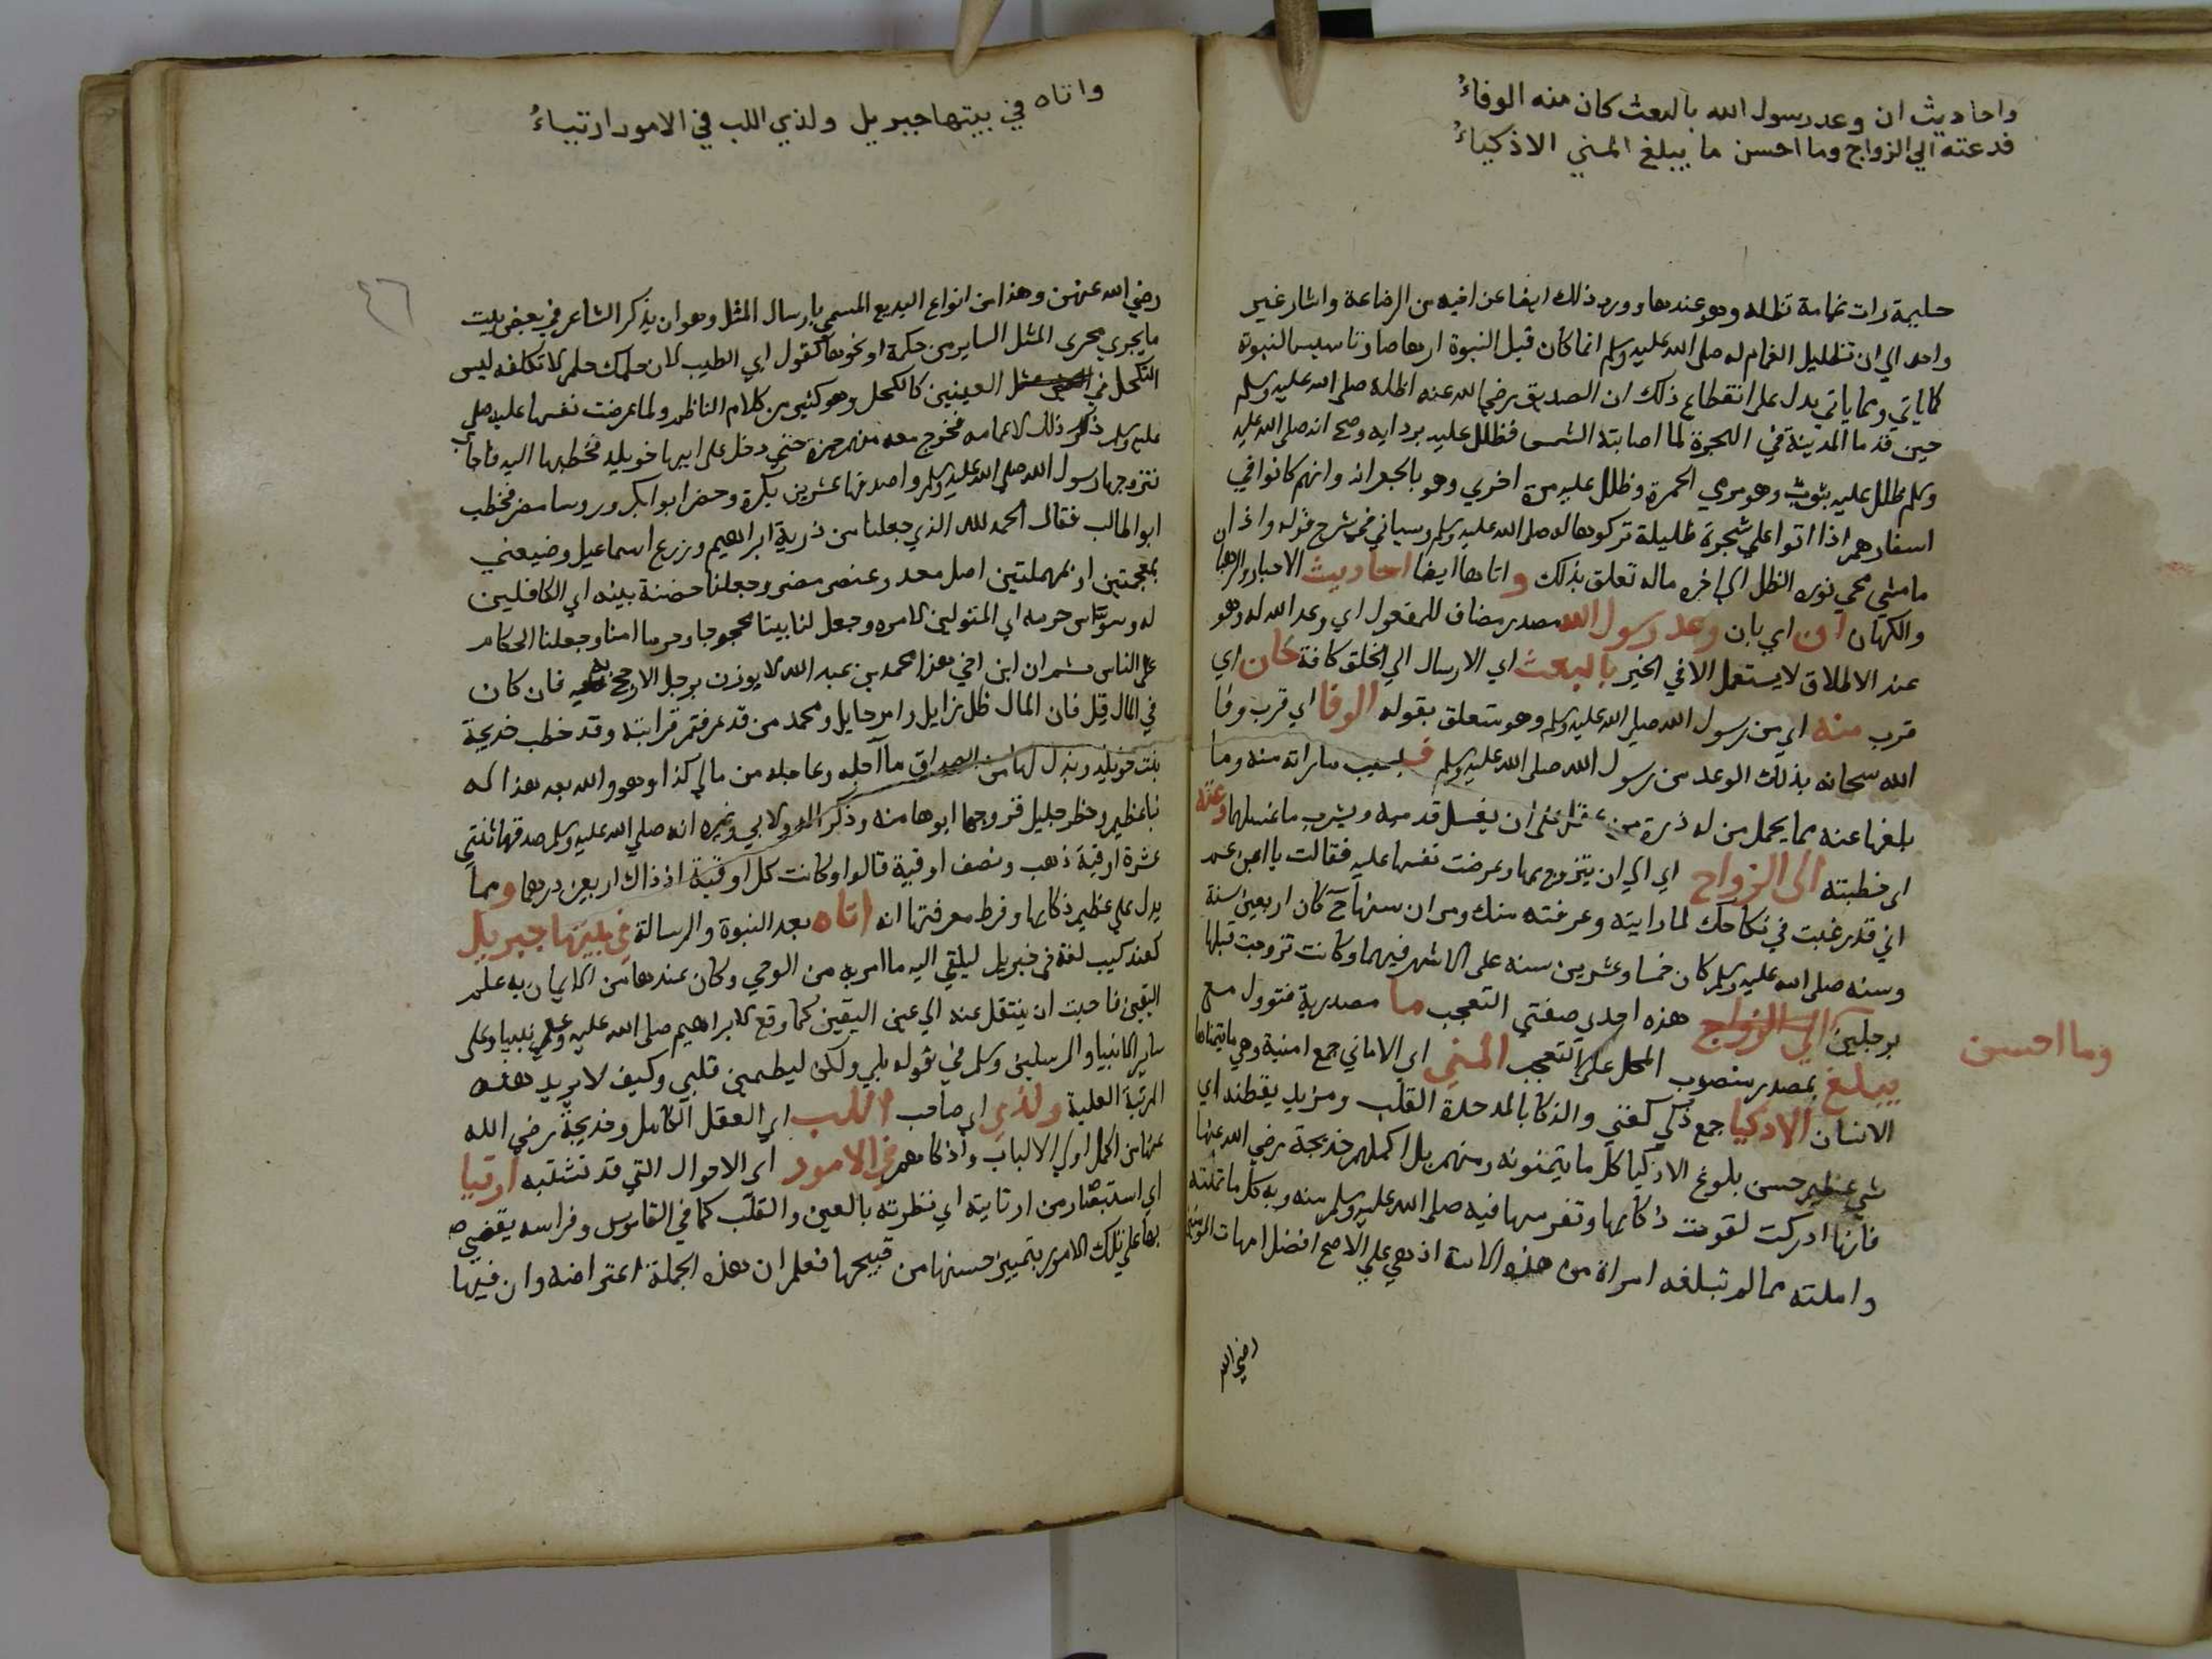 واحاديث ان وعد رسول الله بالبعث كان منه الوفاءُ
فدعته الي الزواج وما احسن ما يبلغ المني الاذكياءُ
حليمة رات غمامة تظله وهو عندها وورد ذلك ايضا عن اخيه من الرضاعة واشار غير
واحد الي ان تظليل الغمام له صلى الله عليه وسلم انما كان قبل النبوة ارهاصا وتاسيسا للنبوة
كما ياتي ومما ياتي يدل على انقطاع ذلك ان الصديق رضي الله عنه اظله صلى الله عليه وسلم
حين قدما المدينة في الهجرة لما اصابته الشمس فظلل عليه بردايه وصح انه صلى الله عليه
وسلم ظلل عليه بثوب وهو يرمي الجمرة وظلل عليه مرة اخري وهو بالجعرانه وانهم كانوا في
اسفارهم اذا اتوا علي شجرة ظليلة تركوها له صلى الله عليه وسلم وسياتي في شرح قوله واذان
ما مشي محي نوره الظل الي اخره ماله تعلق بذلك واتاها ايضا احاديث الاحبار والرهبا
والكهان ان اي بان وعد رسول الله مصدر مضاف للمفعول اي وعد الله له وهو
عند الاطلاق لا يستعمل الا في الخير بالبعث اي الارسال الي الخلق كافة كان اي
قرب منه اي من رسول الله صلى الله عليه وسلم وهو متعلق بقوله الوفا اي قرب وفا
الله سبحانه بذلك الوعد من رسول الله صلى الله عليه وسلم فبسبب ما راته منه وما
بلغها عنه مما يحمل من له ذرة من عقل على ان يغسل قدميه ويشرب ما غسلهما دعته
اي خطبته الى الزواج اي الي ان يتزوج بها وعرضت نفسها عليه فقالت يا ابن عم
اني قد رغبت في نكاحك لما رايته وعرفته منك ومر ان سنها ح كان اربعين سنة
وسنه صلى الله عليه وسلم كان خمسا وعشرين سنه على الاشهر فيهما وكانت تزوجت قبلها
برجلين الي الزواج هذه احدي صفتي التعجب ما مصدرية فتوول مع
وما احسن
يبلغ بمصدر منصوب المحل على التعجب المني اي الاماني جمع امنية وهي ما يتمناها
الانسان الاذكيا جمع ذكي كغني والذكا بالمد حدة القلب ومزيد يقظته اي
شي عظيم حسن بلوغ الاذكيا كل ما يتمنونه ومنهم بل اكملهم خديجة رضي الله عنها
فانها ادركت لقوت ذكايها وتفرسها فيه صلى الله عليه وسلم منه وبه كل ما تمنته
واملته مما لم تبلغه امراة من هذه الامة اذ هي علي الاصح افضل امهات المومنين
رضي الله
واتاه في بيتها جبريل ولذي اللب في الامور ارتياءُ
٤٦
رضي الله عنهن وهذا من انواع البديع المسمي بارسال المثل وهو ان يذكر الشاعر في بعض بيت
ما يجري مجري المثل الساير من حكمة او نحوها كقول ابي الطيب لان حلمك حلم لا تكلفه ليس
التكحل في العينين كالكحل وهو كثير من كلام الناظم ولما عرضت نفسها عليه صلى
عليه وسلم ذكر ذلك لاعمامه فخرج معه منهم حمزة حتي دخل على ابيها خويلد فخطبها اليه فاجاب
فتزوجها رسول الله صلى الله عليه وسلم واصدقها عشرين بكرة وحضر ابوا بكر وروسا مضر فخطب
ابو اطالب فقال الحمد لله الذي جعلنا من ذرية ابراهيم وزرع اسماعيل وضيضي
بمعجمتين او بمهملتين اصل معد وعنصر مضر وجعلنا حضنة بيته اي الكافلين
له وسواس حرمه اي المتولين لامره وجعل لنا بيتا محجوجا وحرما امنا وجعلنا الحكام
على الناس ثم ان ابن اخي هذا محمد بن عبد الله لا يوزن برجل الا رجح به فان كان
في المال قل فان المال ظل زايل وامر حايل ومحمد من قد عرفتم قرابته وقد خطب خديجة
بنت خويلد وبذل لها من الصداق ما آجله وعاجله من مالي كذا وهو والله بعد هذا له
نبا عظيم وخطر جليل فزوجها ابوها منه وذكر الدولابي وغيره انه صلى الله عليه وسلم اصدقها اثنتي
عشرة اوقية ذهب ونصف اوقية قالوا وكانت كل اوقية اذ ذاك اربعين درهما ومما
يدل علي عظيم ذكايها وفرط معرفتها انه اتاه بعد النبوة والرسالة في بيتها جبريل
كعندكيب لغة في جبريل ليلقي اليه ما امر به من الوحي وكان عندها من الايمان به علم
اليقين فاحبت ان ينتقل عنه الي عين اليقين كما وقع لابراهيم صلى الله عليه وعلى نبينا وعلى
ساير الانبيا والمرسلين وسلم في قوله بلي ولكن ليطمين قلبي وكيف لا يريد هذه
المرتبة العلية ولذي اي صاحب اللب اي العقل الكامل وخديجة رضي الله
عنها من اكمل اولي الالباب واذكاهم في الامور اي الاحوال التي قد تشتبه ارتيا
اي استبصار من ارتايته اي نظرته بالعين والقلب كما في القاموس وفراسه يقضي
بها علي تلك الامور بتمييز حسنها من قبيحها فعلم ان هذه الجملة اعتراضه وان فيها